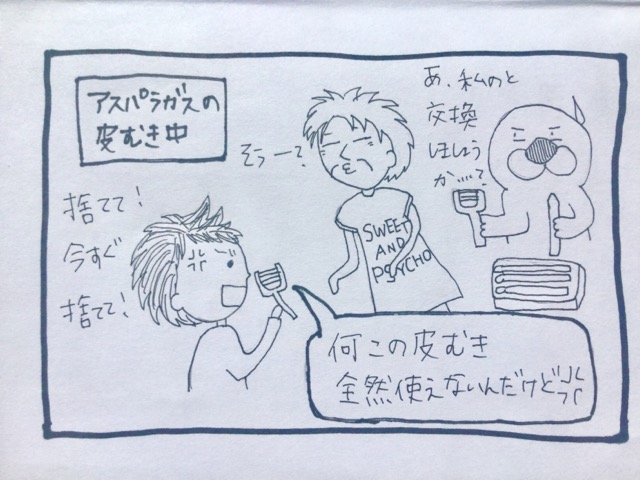 アスパラガスの
皮むき中
あ、私のと
交換
しましょう
か……?
そぅー?
捨てて!
今すぐ
捨てて!
SWEET
AND
PSYCHO
何この皮むき
全然使えないんだけど